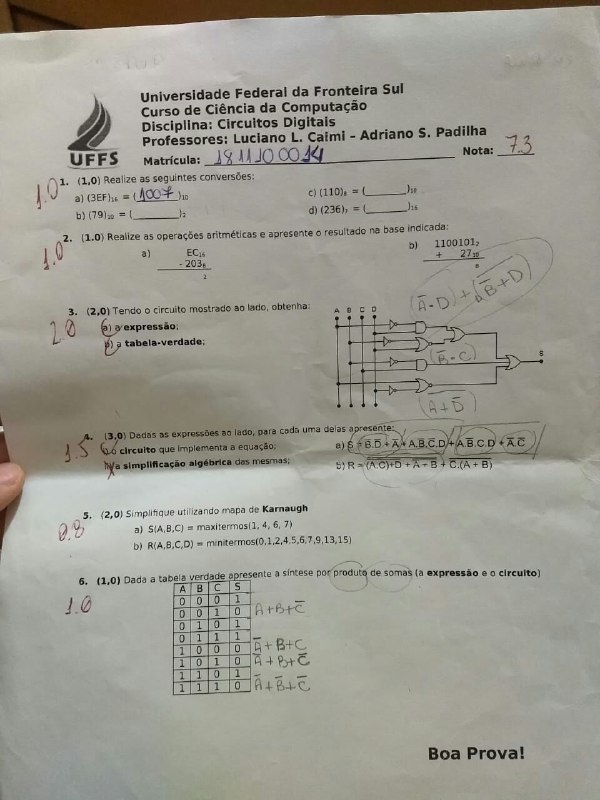 Universidade Federal da Fronteira Sul
Curso de Ciência da Computação
Disciplina: Circuitos Digitais
Professores: Luciano L. Caimi – Adriano S. Padilha
UFFS
Matrícula: 1811100014 Nota: 7.3
1.0 1. (1,0) Realize as seguintes conversões:
a) (3EF)₁₆ = (1007)₁₀ c) (110)₈ = (______)₁₀
b) (79)₁₀ = (______)₂ d) (236)₇ = (______)₁₆
1.0 2. (1.0) Realize as operações aritméticas e apresente o resultado na base indicada:
a) EC₁₆ b) 1100101₂
- 203₈ + 27₁₀
₂ ₈
(A̅-D)+(B̅+D)
3. (2,0) Tendo o circuito mostrado ao lado, obtenha:
2.0 a) a expressão;
b) a tabela-verdade;
A B C D
S
(B̅-C)
(A+D̅)
4. (3,0) Dadas as expressões ao lado, para cada uma delas apresente:
1.5 a) o circuito que implementa a equação;
b) a simplificação algébrica das mesmas;
b) R = (A.C)+D + A + B + C.(A + B)
5. (2,0) Simplifique utilizando mapa de Karnaugh
0.8 a) S(A,B,C) = maxitermos(1, 4, 6, 7)
b) R(A,B,C,D) = minitermos(0,1,2,4,5,6,7,9,13,15)
6. (1,0) Dada a tabela verdade apresente a síntese por produto de somas (a expressão e o circuito)
1.0
A B C S
0 0 0 1
0 0 1 0 A+B+C̅
0 1 0 1
0 1 1 1
1 0 0 0 A̅+B+C
1 0 1 0 A̅+B+C̅
1 1 0 1
1 1 1 0 A̅+B̅+C̅
Boa Prova!